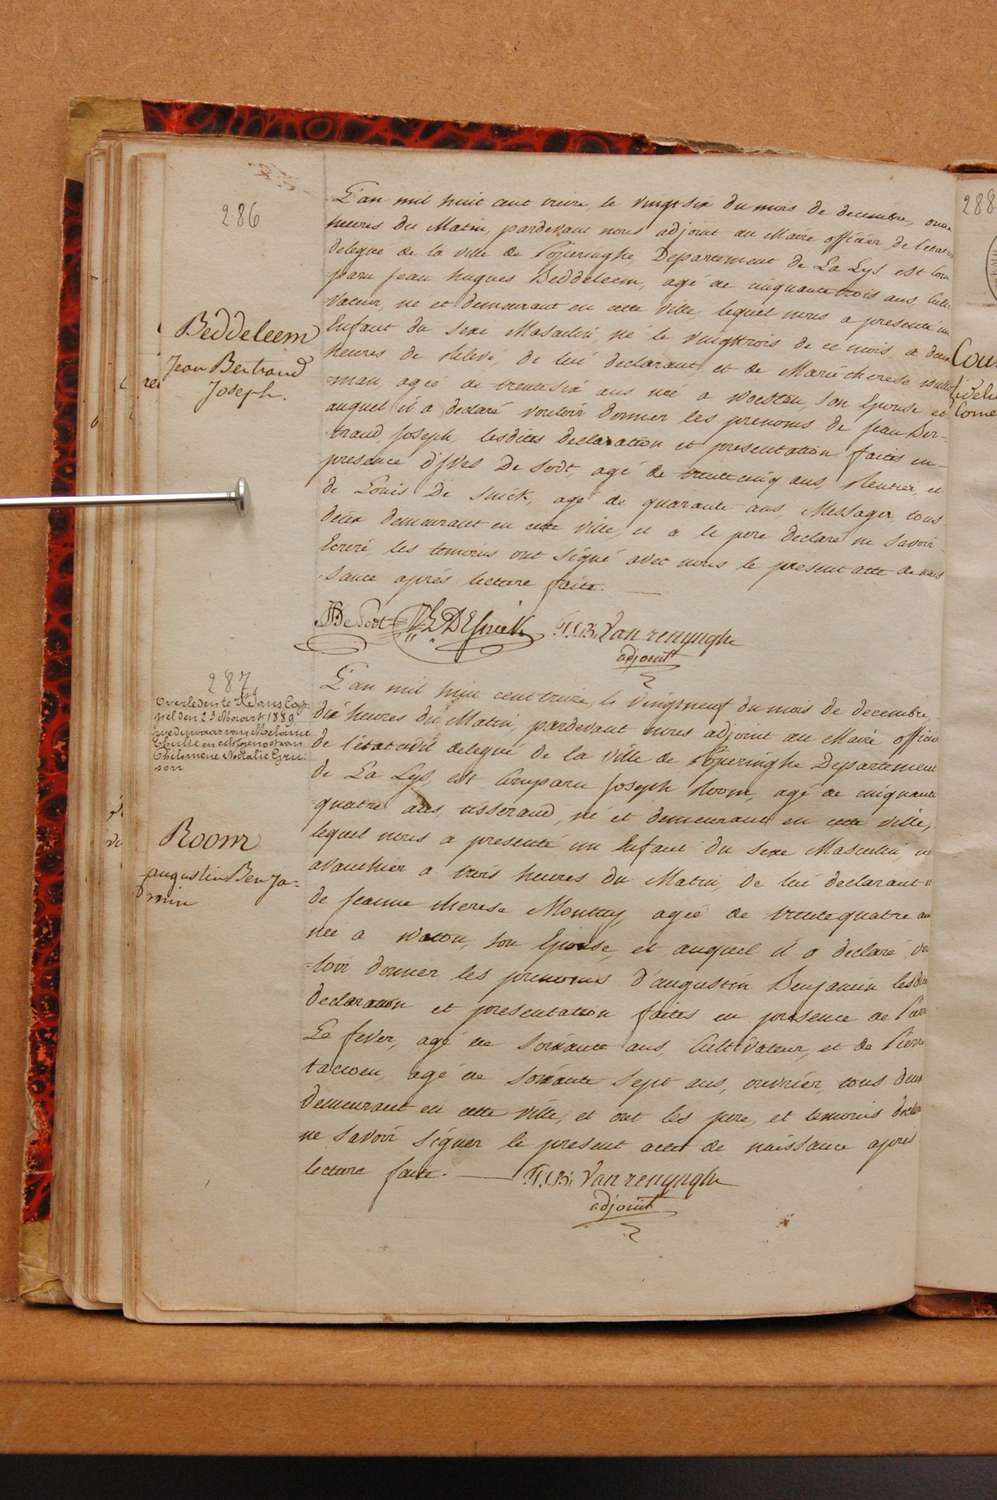 286
L'an mil huit cent treize, le vingt six du mois de decembre, onze
heures du Matin, pardevant nous adjoint au Maire officier de l'etat
delegué de la ville de Poperinghe, Departement de La Lys est Com
paru jean hugues Beddeleem, agé de cinquante trois ans, Culti
vateur, né et demeurant en cette ville lequel nous a presenté un
Beddeleem
Jean Bertrand
Joseph.
Enfant du sexe Masculin né le vingttrois de ce mois, a deux
heures de relevé, de lui declarant et de Marie therese
man, agée de trentesix ans née a woesten, son Epouse et
auquel il a declaré vouloir donner les prenoms de jean Ber-
trand joseph, lesdites declaration et presentation faites en-
presence d'yves De Sodt, agé de trente cinq ans, Rentier, et
de Louis De Snick, agé de quarante ans, Messager, tous
deux demeurant en cette ville, et a le pere declaré ne savoir
Ecrire, les temoins ont signé avec nous le present acte de nais
sance aprés lecture faite.
De Sodt L DESnick F:J:B: Van renynghe
adjoint
287
Overleden te
pel den 23 Maart 1889
weduwnaar van Melanie
en echtgenoot van
Philomene Nathalie
son
L'an mil huit cent treize, le vingtneuf du mois de decembre,
dix heures du Matin, pardevant nous adjoint au Maire officier
de l'etat civil delegué de la ville de Poperinghe Departement
de La Lys, est Comparu joseph Room, agé de cinquante
quatre ans, tisserand, né et demeurant en cette ville,
Room
augustin Benja-
min
lequel nous a presenté un Enfant du sexe Masculin né
avanthier a trois heures du Matin, de lui declarant et
de jeanne therese Monteny agée de trentequatre ans
née a watou, son Epouse, et auquel il a declaré vou
loir donner les prenoms d'augustin Benjamin lesdites
declaration et presentation faites en presence de Pierre
Le fever, agé de soixante ans, Cultivateur, et de Pierre
tacoen, agé de soixante sept ans, ouvrier, tous deux
demeurant en cette ville, et ont les pere, et temoins declaré
ne savoir signer le present acte de naissance aprés
lecture faite. F:J:B: Van renynghe
adjoint
288
Cou
fidele
Corne